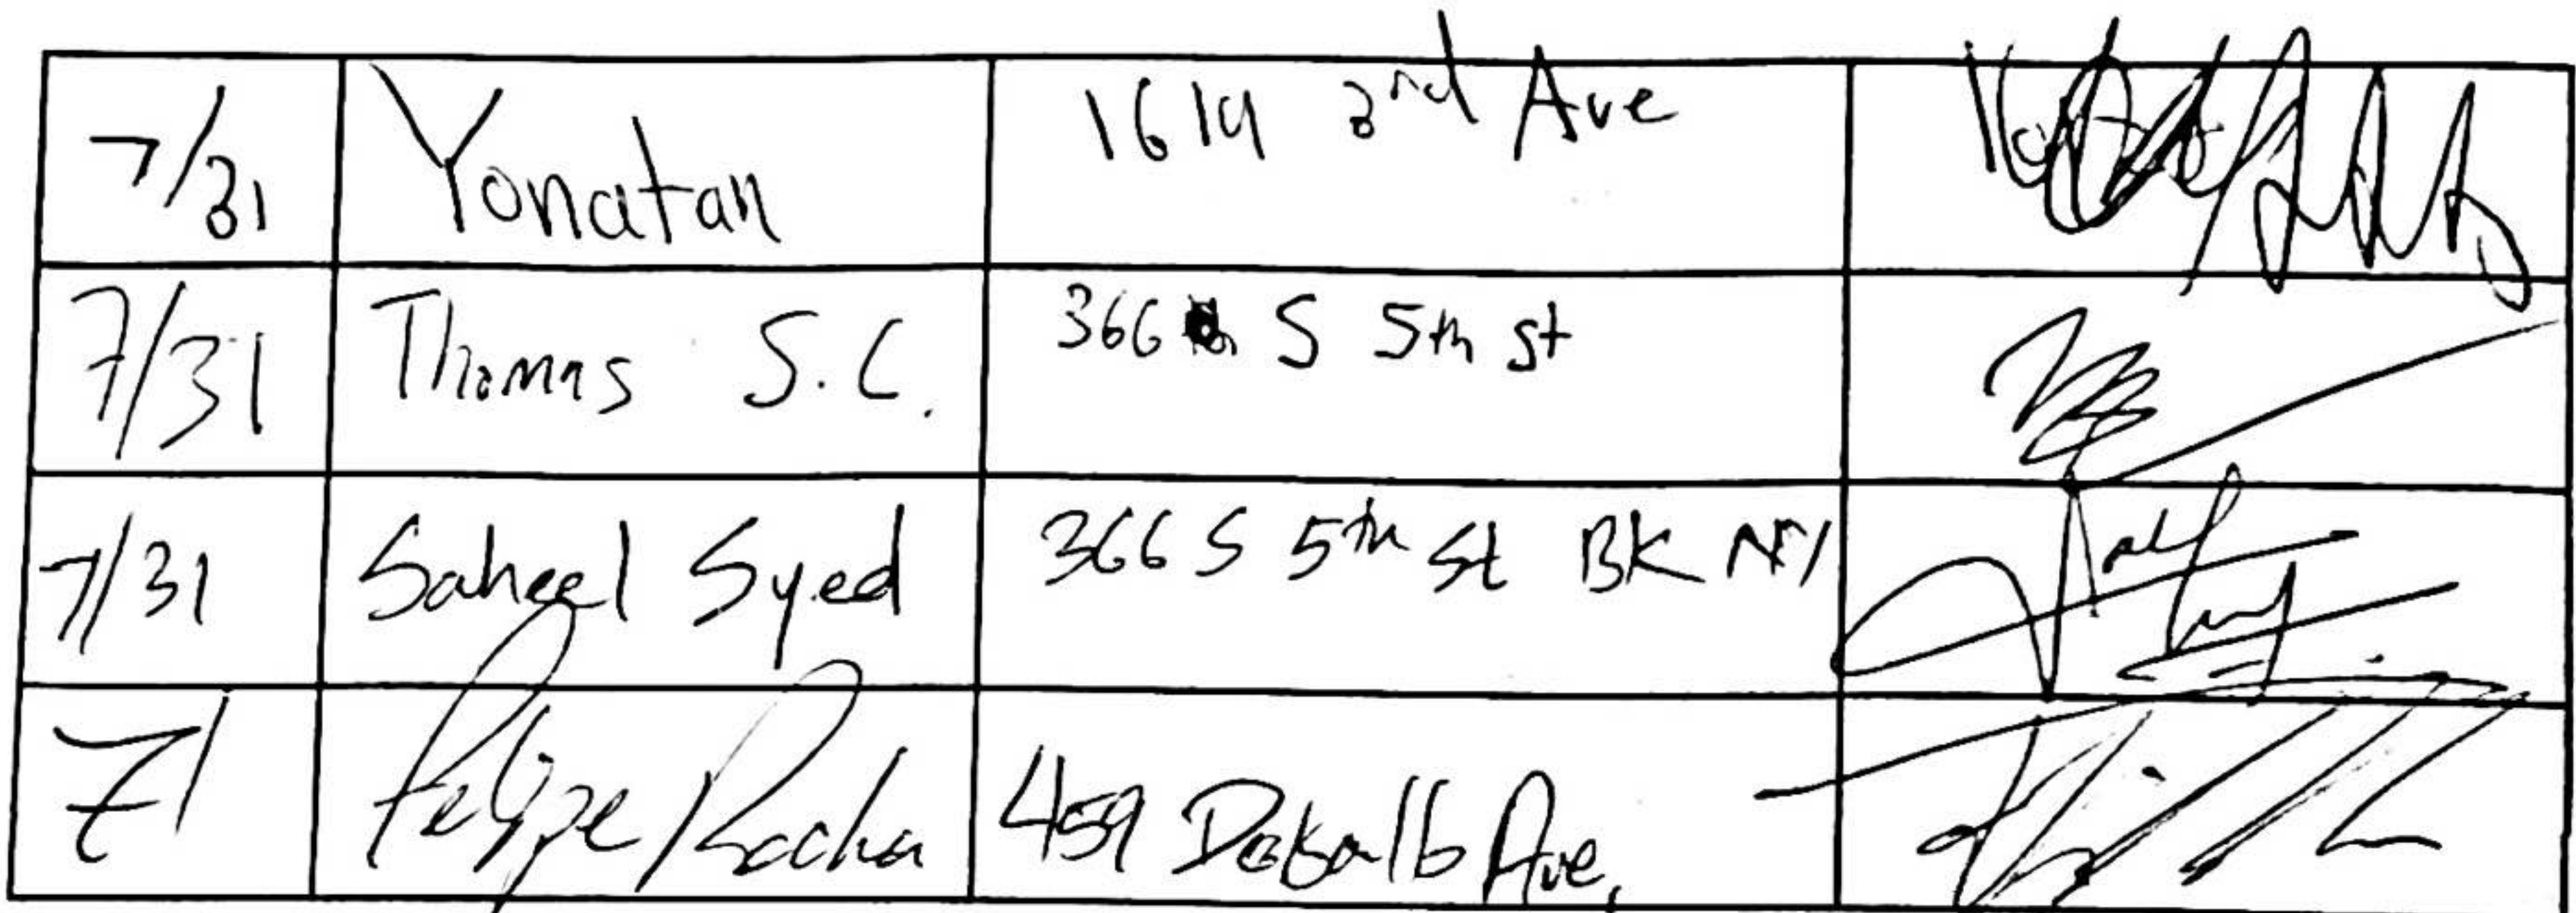 7/31 Yonatan 1614 3rd Ave
7/31 Thomas S.C. 366 S 5th st
7/31 Saheel Syed 366 S 5th St BK NY
Felipe Rocha 459 Dekalb Ave,